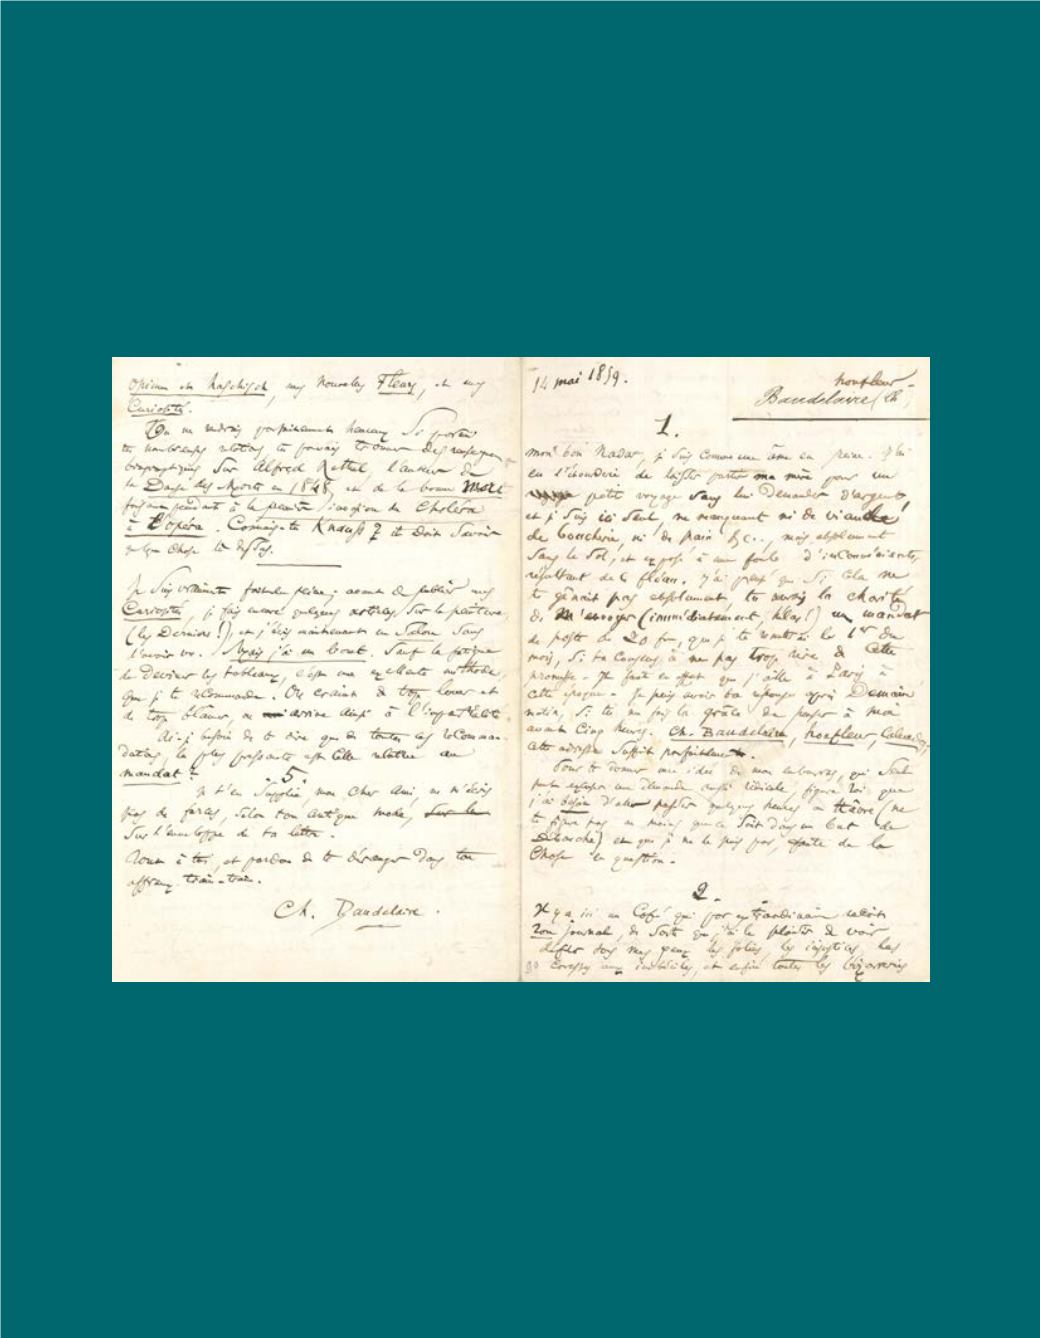 Opium et Haschisch, mes nouvelles Fleurs, et mes
Curiosités.
Tu me rendrais parfaitement heureux si parmi
tes nombreuses relations tu pouvais trouver des renseignemen
biographiques sur Alfred Rethel, l'auteur de
la Danse des Morts en 1848, et de la bonne Mort
faisant pendant à la première invasion du Choléra
à l'Opéra. Connais-tu Knauss ? il doit savoir
quelque chose là dessus.
Je suis vraiment fort en peine ; avant de publier mes
Curiosités, je fais encore quelques articles sur la peinture,
(les derniers !), et j'écris maintenant un Salon sans
l'avoir vu. Mais j'ai un livret. Sauf la fatigue
de deviner les tableaux, c'est une excellente méthode,
que je te recommande. On craint de trop louer et
de trop blâmer, on arrive ainsi à l'impartialité.
Ai-je besoin de te dire que de toutes les recomman-
dations, la plus pressante est celle relative au
mandat ?
5.
Je t'en supplie, mon cher ami, ne m'écris
pas de farces, selon ton antique mode, sur le
sur l'enveloppe de ta lettre.
Tout à toi, et pardon de te déranger dans ton
affreux train-train.
Ch. Baudelaire.
14 mai 1859.
honfleur -
Baudelaire (Ch
1.
mon bon Nadar, je suis comme une âme en peine. J'ai
eu l'étourderie de laisser partir ma mère pour un
petit voyage sans lui demander d'argent,
et je suis ici seul, ne manquant ni de viande
de boucherie, ni de pain &c.., mais absolument
sans le sol, et exposé à une foule d'inconvénients,
résultant de ce fléau. J'ai pensé que si cela ne
te gênait pas absolument, tu aurais la charité
de m'envoyer (immédiatement, hélas !) un mandat
de poste de 20 fr., que je te remettrai le 1er du
mois, si tu consens à ne pas trop rire de cette
promesse. Il faut en effet que j'aille à Paris à
cette époque. Je puis avoir ta réponse après Demain
matin, si tu me fais la grâce de penser à moi
avant cinq heures. Ch. Baudelaire, honfleur, Calvados,
cette adresse suffit parfaitement.
Pour te donner une idée de mon embarras, qui seul
peut excuser une demande aussi ridicule, figure-toi que
j'ai besoin d'aller passer quelques heures au Hâvre (ne
te figure pas au moins que ce soit dans un but de
Débauche) et que je ne le puis pas, faute de la
chose en question.
2.
Il y a ici un café qui par extraordinaire reçoit
ton journal, de sorte que j'ai le plaisir de voir
défiler sous mes yeux les folies, les injustices, les
caresses aux imbéciles, et enfin toutes les bizarreries